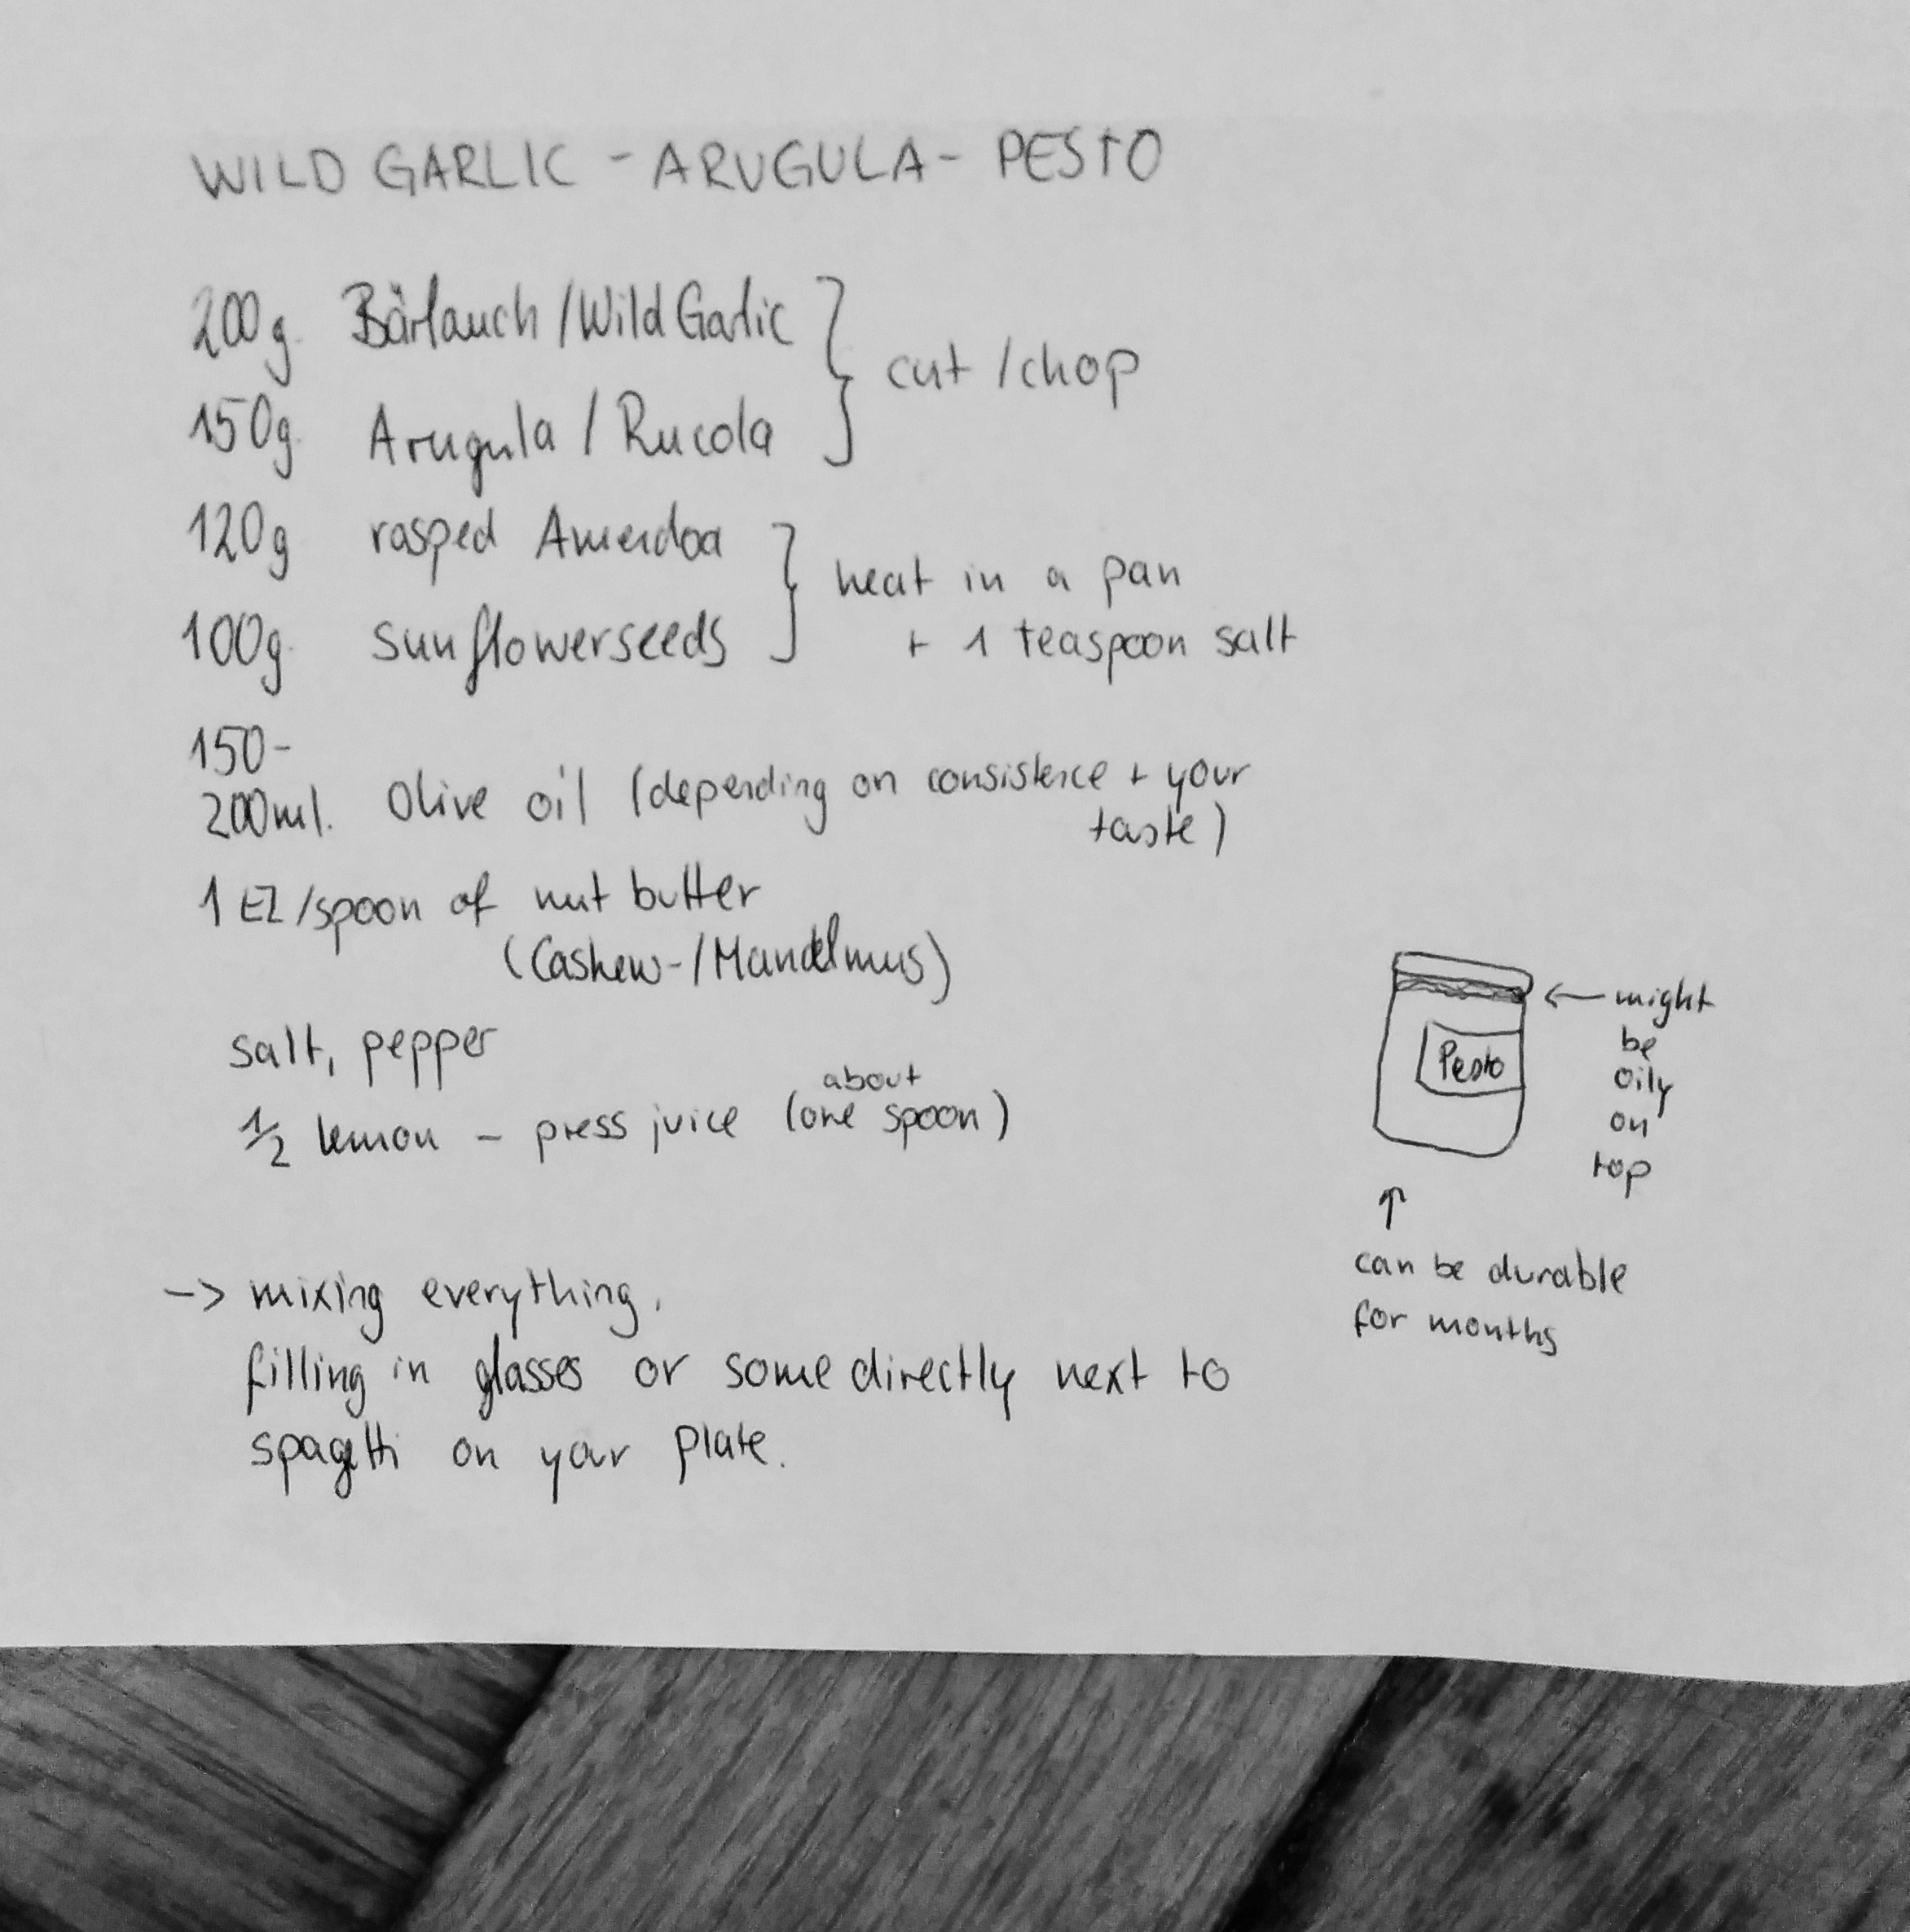 WILD GARLIC - ARUGULA - PESTO
200g Bärlauch / Wild Garlic
150g Arugula / Rucola
cut / chop
120g rasped Amendoa
100g sunflowerseeds
heat in a pan
+ 1 teaspoon salt
150-
200ml. Olive oil (depending on consistence + your
taste)
1 EZ/spoon of nut butter
(Cashew-/Mandelmus)
salt, pepper
about
1/2 lemon - press juice (one spoon)
-> mixing everything.
filling in glasses or some directly next to
spagetti on your plate.
Pesto
← might
be
oily
on
top
↑
can be durable
for months